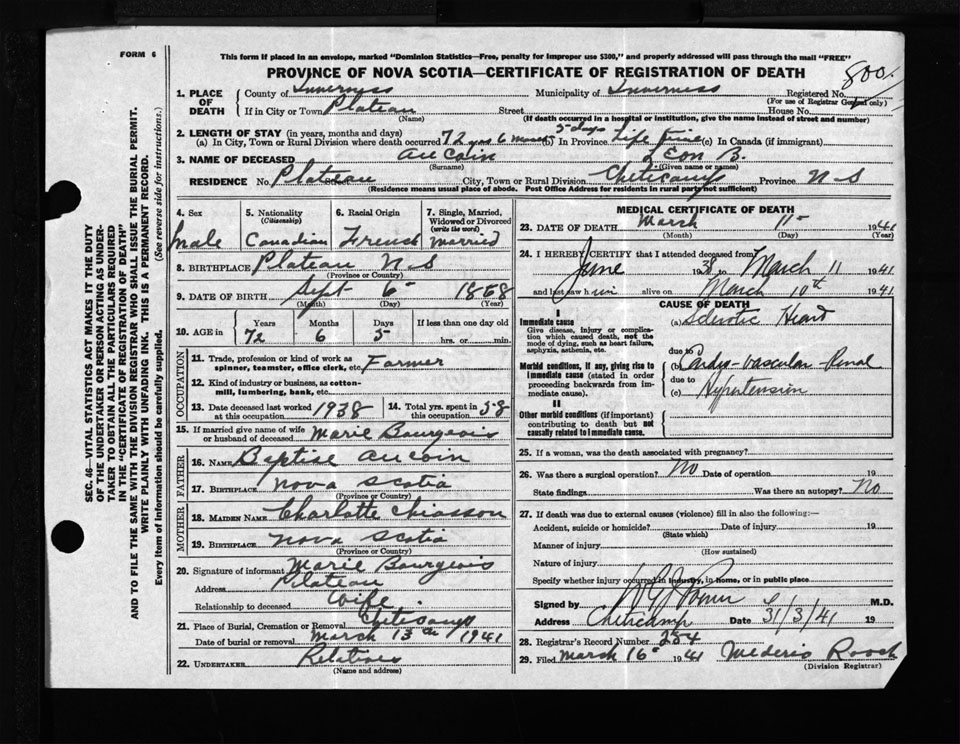 FORM 6
This form if placed in an envelope, marked "Dominion Statistics—Free, penalty for improper use $300," and properly addressed will pass through the mail "FREE"
PROVINCE OF NOVA SCOTIA—CERTIFICATE OF REGISTRATION OF DEATH
800
1. PLACE OF DEATH
County of Inverness Municipality of Inverness Registered No.
(For use of Registrar General only)
If in City or Town Plateau Street House No.
(Name) (If death occurred in a hospital or institution, give the name instead of street and number)
2. LENGTH OF STAY (in years, months and days)
(a) In City, Town or Rural Division where death occurred 72 yrs 6 months 5 days (b) In Province Life Time (c) In Canada (if immigrant)
3. NAME OF DECEASED AuCoin Leon B.
(Surname) (Given name or names)
RESIDENCE No. Plateau City, Town or Rural Division Cheticamp Province N-S
(Residence means usual place of abode. Post Office Address for residents in rural parts not sufficient)
4. Sex Male
5. Nationality (Citizenship) Canadian
6. Racial Origin French
7. Single, Married, Widowed or Divorced (write the word) Married
8. BIRTHPLACE Plateau N-S
(Province or Country)
9. DATE OF BIRTH Sept 6 1868
(Month) (Day) (Year)
10. AGE in Years Months Days If less than one day old
72 6 5 hrs. or min.
OCCUPATION
11. Trade, profession or kind of work as spinner, teamster, office clerk, etc. Farmer
12. Kind of industry or business, as cotton-mill, lumbering, bank, etc.
13. Date deceased last worked at this occupation 1938
14. Total yrs. spent in this occupation 58
15. If married give name of wife or husband of deceased Marie Bourgeois
FATHER
16. NAME Baptise AuCoin
17. BIRTHPLACE Nova Scotia
(Province or Country)
MOTHER
18. MAIDEN NAME Charlotte Chiasson
19. BIRTHPLACE Nova Scotia
(Province or Country)
20. Signature of informant Marie Bourgeois
Address Plateau
Relationship to deceased Wife
21. Place of Burial, Cremation or Removal Cheticamp
Date of burial or removal March 13th 1941
22. UNDERTAKER Relatives
(Name and address)
MEDICAL CERTIFICATE OF DEATH
23. DATE OF DEATH March 11 1941
(Month) (Day) (Year)
24. I HEREBY CERTIFY that I attended deceased from
June 1938 to March 11 1941
and last saw him alive on March 10th 1941
CAUSE OF DEATH
I
Immediate cause
Give disease, injury or complication which caused death, not the mode of dying, such as heart failure, asphyxia, asthenia, etc.
(a) Sclerotic Heart
due to
Morbid conditions, if any, giving rise to immediate cause (stated in order proceeding backwards from immediate cause).
(b) Cardio-Vascular Renal
due to
(c) Hypertension
II
Other morbid conditions (if important) contributing to death but not causally related to immediate cause.
25. If a woman, was the death associated with pregnancy?
26. Was there a surgical operation? No Date of operation 19
State findings Was there an autopsy? No
27. If death was due to external causes (violence) fill in also the following:—
Accident, suicide or homicide? Date of injury 19
(State which)
Manner of injury
(How sustained)
Nature of injury
Specify whether injury occurred in industry, in home, or in public place
Signed by M.D.
Address Cheticamp Date 31/3/41 19
28. Registrar's Record Number 254
29. Filed March 16 1941 Mederic Roach
(Division Registrar)
SEC. 46—VITAL STATISTICS ACT MAKES IT THE DUTY
OF THE UNDERTAKER OR PERSON ACTING AS UNDER-
TAKER TO OBTAIN ALL THE PARTICULARS REQUIRED
IN THE "CERTIFICATE OF REGISTRATION OF DEATH"
AND TO FILE THE SAME WITH THE DIVISION REGISTRAR WHO SHALL ISSUE THE BURIAL PERMIT.
WRITE PLAINLY WITH UNFADING INK. THIS IS A PERMANENT RECORD.
Every item of information should be carefully supplied. (See reverse side for instructions.)